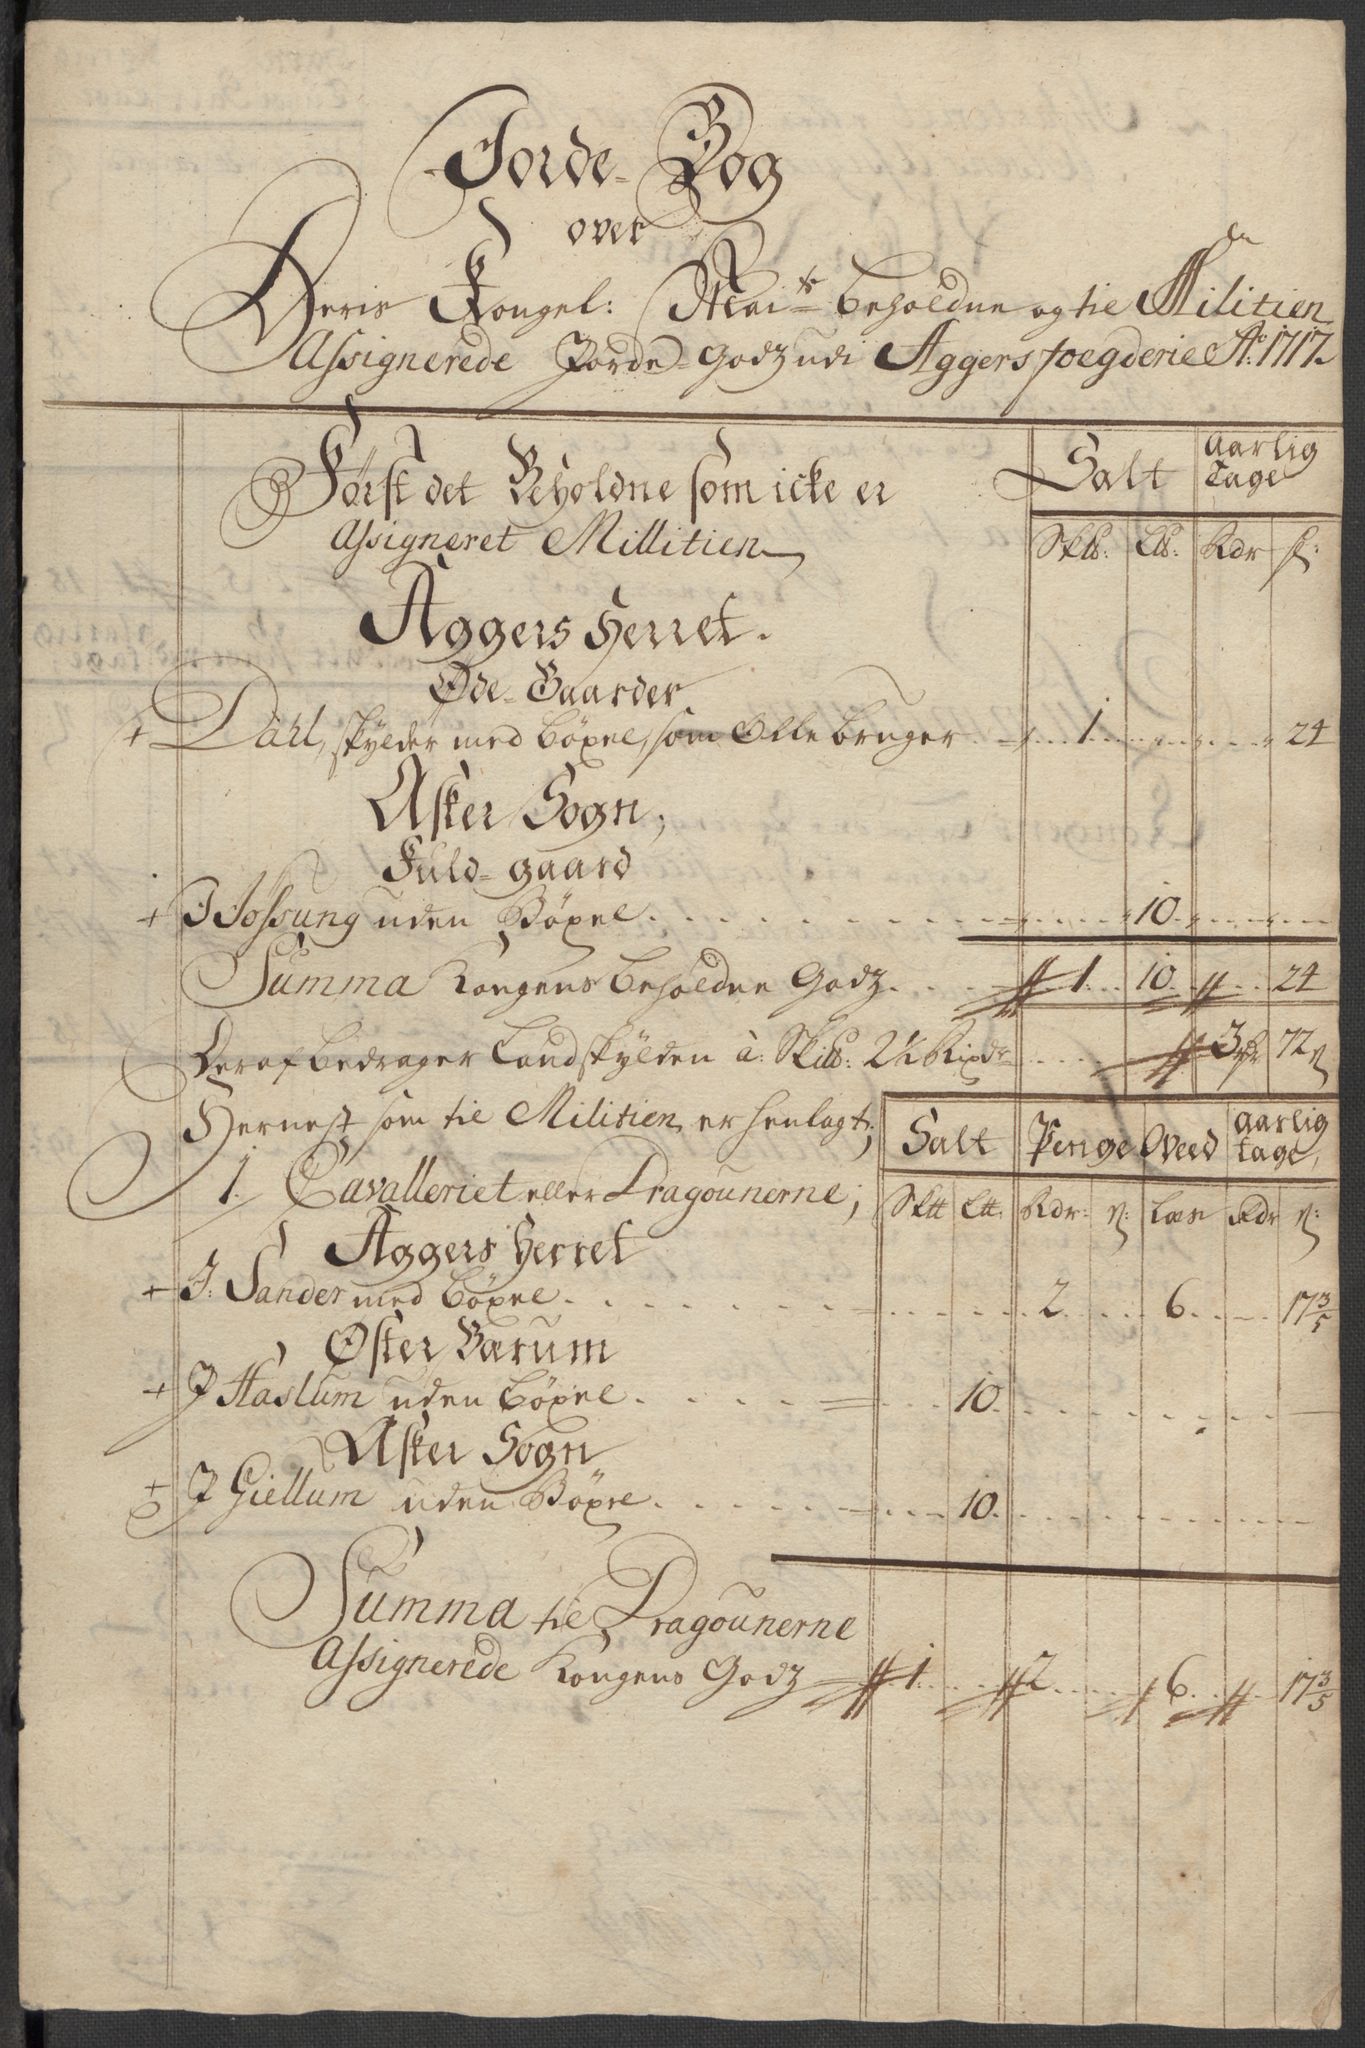 Jorde-Bog
over
Deris Kongel: Mai^ts beholdne og til Militien
Assignerede Jorde-Godz udi Aggers foegderie A^o: 1717.
Først det Beholdne som icke er
Assigneret Millitien
Salt | Aarlig Tage
Sk℔: | L℔: | Rdr | ß:
Aggers Herret.
Øde-Gaarder
+ Dahl, skylder med bøxel, som Olle bruger 1 24
Asker Sogn,
Fuld-gaard
+ J Jossung uden Bøxel 10
Summa Kongens beholdne Godz 1 10 24
Deraf bedrager Landskylden à: Sk℔: 2½ Rixdr 3 rdr 72 ß
Hernest som til Militien er henlagt;
Salt | Penge | Weed | Aarlig tage,
1. Cavalleriet eller Dragounerne;
Sktt | Ltt: | Rdr: | ß: | Læs | Rdr | ß:
Aggers Herret
+ J: Sander med bøxel 2 6 17 3/5
Øster Bærum
+ J Haslum uden bøxel 10
Asker Sogn
+ J Giellum uden Bøxel 10
Summa til Dragounerne
Assignerede Kongens Godz 1 2 6 17 3/5